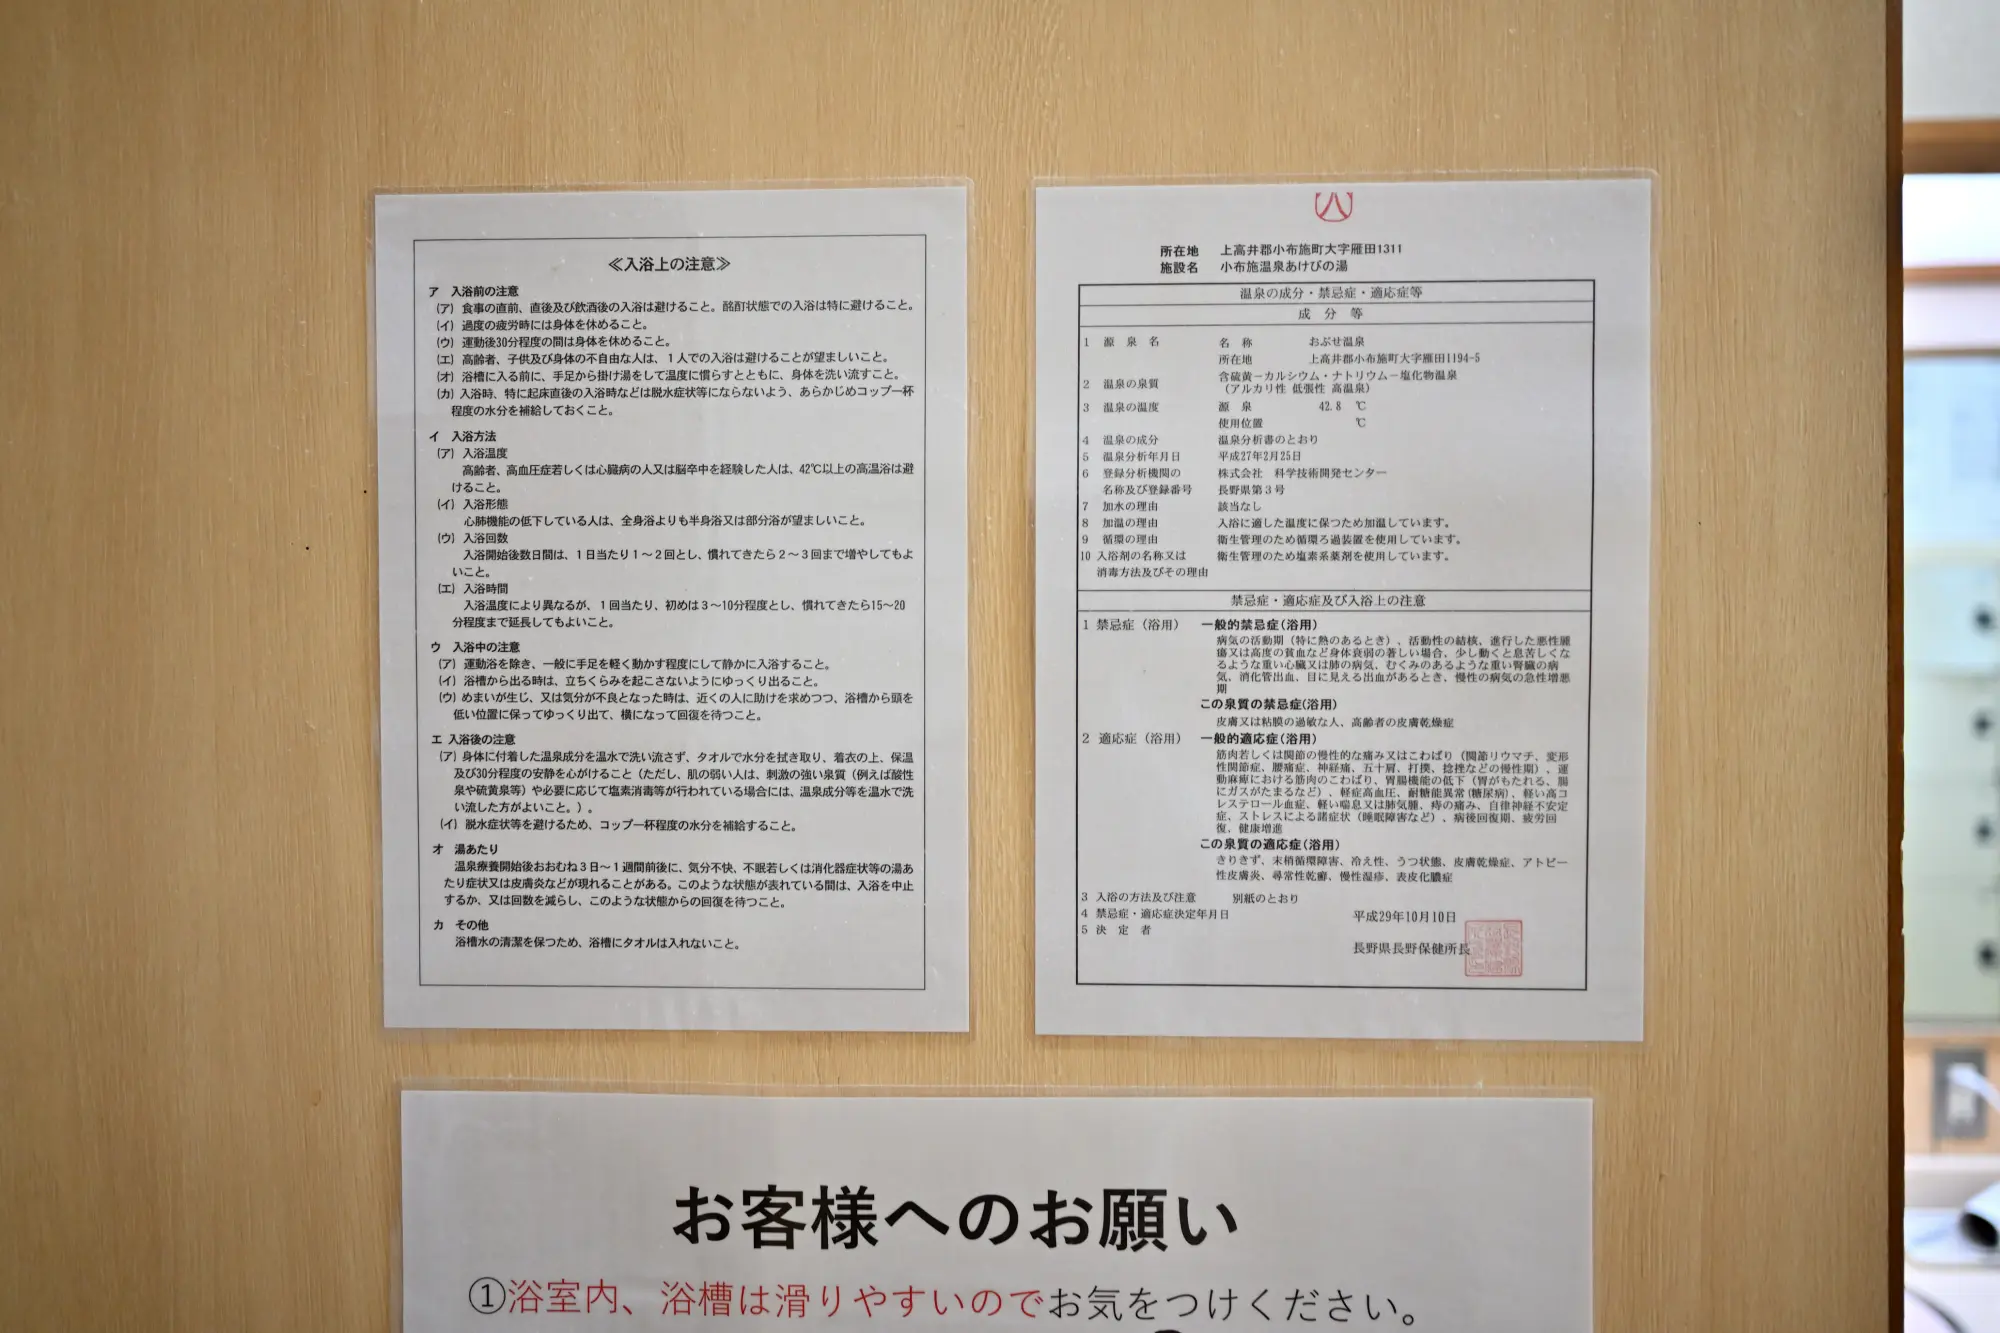 ≪入浴上の注意≫
ア 入浴前の注意
(ア) 食事の直前、直後及び飲酒後の入浴は避けること。酩酊状態での入浴は特に避けること。
(イ) 過度の疲労時には身体を休めること。
(ウ) 運動後30分程度の間は身体を休めること。
(エ) 高齢者、子供及び身体の不自由な人は、1人での入浴は避けることが望ましいこと。
(オ) 浴槽に入る前に、手足から掛け湯をして温度に慣らすとともに、身体を洗い流すこと。
(カ) 入浴時、特に起床直後の入浴時などは脱水症状等にならないよう、あらかじめコップ一杯
程度の水分を補給しておくこと。
イ 入浴方法
(ア) 入浴温度
高齢者、高血圧症若しくは心臓病の人又は脳卒中を経験した人は、42℃以上の高温浴は避
けること。
(イ) 入浴形態
心肺機能の低下している人は、全身浴よりも半身浴又は部分浴が望ましいこと。
(ウ) 入浴回数
入浴開始後数日間は、1日当たり1〜2回とし、慣れてきたら2〜3回まで増やしてもよ
いこと。
(エ) 入浴時間
入浴温度により異なるが、1回当たり、初めは3〜10分程度とし、慣れてきたら15〜20
分程度まで延長してもよいこと。
ウ 入浴中の注意
(ア) 運動浴を除き、一般に手足を軽く動かす程度にして静かに入浴すること。
(イ) 浴槽から出る時は、立ちくらみを起こさないようにゆっくり出ること。
(ウ) めまいが生じ、又は気分が不良となった時は、近くの人に助けを求めつつ、浴槽から頭を
低い位置に保ってゆっくり出て、横になって回復を待つこと。
エ 入浴後の注意
(ア) 身体に付着した温泉成分を温水で洗い流さず、タオルで水分を拭き取り、着衣の上、保温
及び30分程度の安静を心がけること（ただし、肌の弱い人は、刺激の強い泉質（例えば酸性
泉や硫黄泉等）や必要に応じて塩素消毒等が行われている場合には、温泉成分等を温水で洗
い流した方がよいこと。）。
(イ) 脱水症状等を避けるため、コップ一杯程度の水分を補給すること。
オ 湯あたり
温泉療養開始後おおむね3日〜1週間前後に、気分不快、不眠若しくは消化器症状等の湯あ
たり症状又は皮膚炎などが現れることがある。このような状態が表れている間は、入浴を中止
するか、又は回数を減らし、このような状態からの回復を待つこと。
カ その他
浴槽水の清潔を保つため、浴槽にタオルは入れないこと。
所在地 上高井郡小布施町大字雁田1311
施設名 小布施温泉あけびの湯
温泉の成分・禁忌症・適応症等
成 分 等
1 源 泉 名 名 称 おぶせ温泉
所在地 上高井郡小布施町大字雁田1194-5
2 温泉の泉質 含硫黄－カルシウム・ナトリウム－塩化物温泉
（アルカリ性 低張性 高温泉）
3 温泉の温度 源 泉 42.8 ℃
使用位置 ℃
4 温泉の成分 温泉分析書のとおり
5 温泉分析年月日 平成27年2月25日
6 登録分析機関の 株式会社 科学技術開発センター
名称及び登録番号 長野県第3号
7 加水の理由 該当なし
8 加温の理由 入浴に適した温度に保つため加温しています。
9 循環の理由 衛生管理のため循環ろ過装置を使用しています。
10 入浴剤の名称又は 衛生管理のため塩素系薬剤を使用しています。
消毒方法及びその理由
禁忌症・適応症及び入浴上の注意
1 禁忌症（浴用） 一般的禁忌症(浴用)
病気の活動期（特に熱のあるとき）、活動性の結核、進行した悪性腫
瘍又は高度の貧血など身体衰弱の著しい場合、少し動くと息苦しくな
るような重い心臓又は肺の病気、むくみのあるような重い腎臓の病
気、消化管出血、目に見える出血があるとき、慢性の病気の急性増悪
期
この泉質の禁忌症(浴用)
皮膚又は粘膜の過敏な人、高齢者の皮膚乾燥症
2 適応症（浴用） 一般的適応症(浴用)
筋肉若しくは関節の慢性的な痛み又はこわばり（関節リウマチ、変形
性関節症、腰痛症、神経痛、五十肩、打撲、捻挫などの慢性期）、運
動麻痺における筋肉のこわばり、胃腸機能の低下（胃がもたれる、腸
にガスがたまるなど）、軽症高血圧、耐糖能異常(糖尿病)、軽い高コ
レステロール血症、軽い喘息又は肺気腫、痔の痛み、自律神経不安定
症、ストレスによる諸症状（睡眠障害など）、病後回復期、疲労回
復、健康増進
この泉質の適応症(浴用)
きりきず、末梢循環障害、冷え性、うつ状態、皮膚乾燥症、アトピー
性皮膚炎、尋常性乾癬、慢性湿疹、表皮化膿症
3 入浴の方法及び注意 別紙のとおり
4 禁忌症・適応症決定年月日 平成29年10月10日
5 決 定 者 長野県長野保健所長
お客様へのお願い
①浴室内、浴槽は滑りやすいのでお気をつけください。